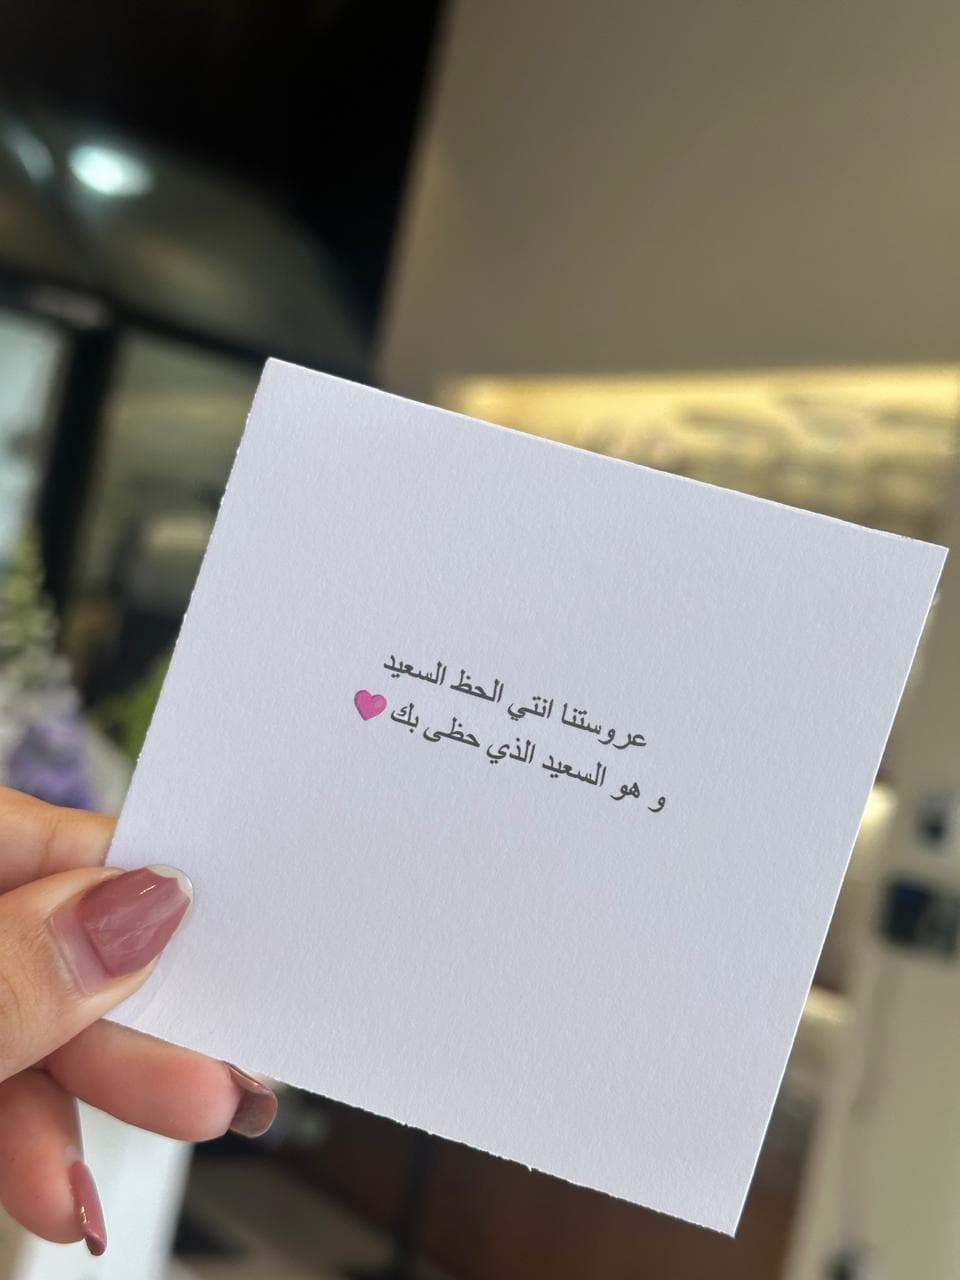 عروستنا انتي الحظ السعيد
و هو السعيد الذي حظى بك 🩷